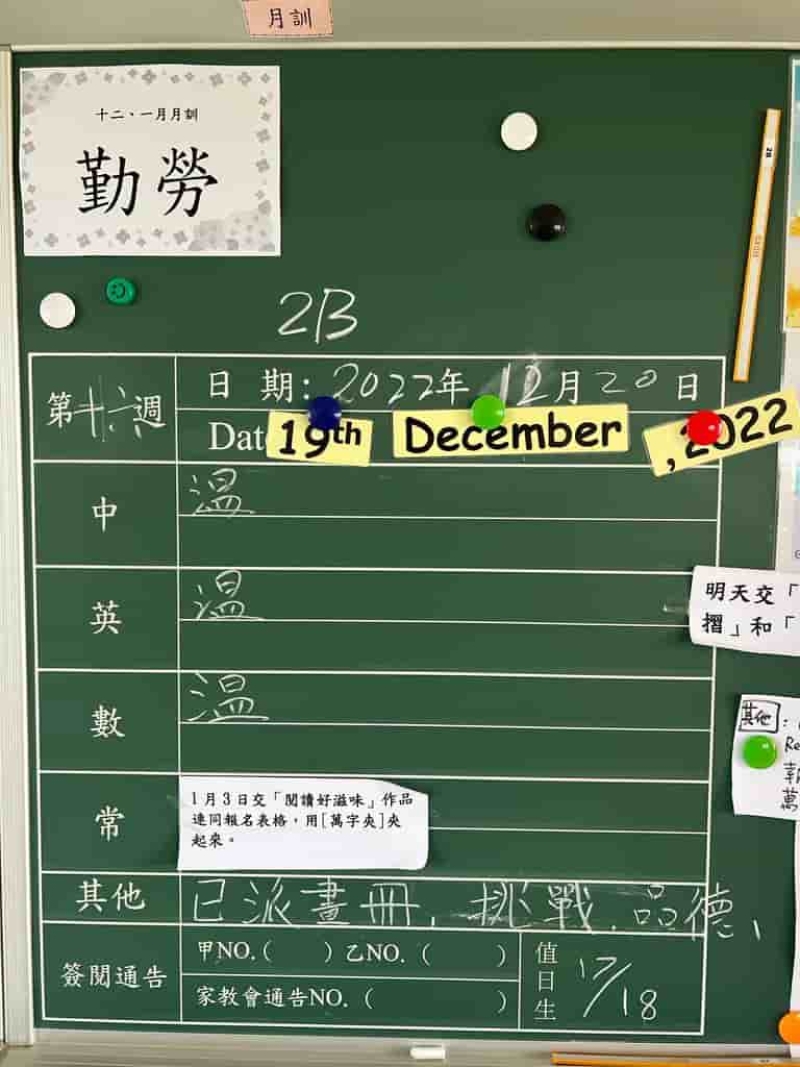 月訓
十二、一月月訓
勤勞
2B
第十六週
日 期: 2022年 12月20日
Dat 19th December , 2022
中 溫
英 溫
明天交「
摺」和「
數 溫
其他:
Re
常
1月3日交「閱讀好滋味」作品
連同報名表格，用[萬字夾]夾
起來。
萬
其他 已派畫冊,挑戰.品德、
簽閱通告
甲NO.( ) 乙NO. ( )
家教會通告NO. ( )
值日生 17/18